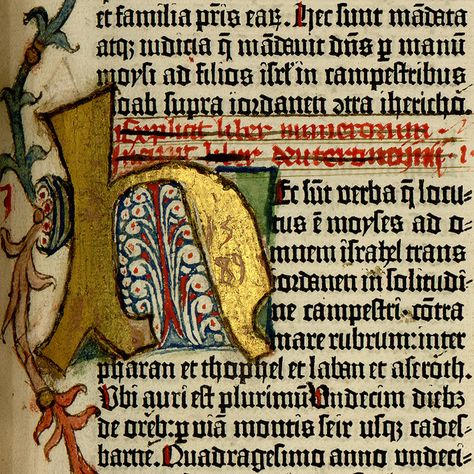 et familia pr̄is eaꝝ. Hec sunt mādata
atqꝫ iudicia q̄ mādauit dn̄s ꝑ manū
moysi ad filios isrl̄ in campestribus
oab supra iordanen ꝯtra iherichō.
Explicit liber numerorum.
Incipit liber deuteronomij.
h Ec sūt verba q̄ locu
tus ē moyses ad o-
mnem israhel trans
iordanen in solitudi-
ne campestri. cōtra
mare rubrum: inter
pharan et thophel et laban et aseroth.
Ubi auri est plurimū. Undecim diebꝫ
de oreb: ꝑ viam montis seir usqꝫ cades-
barne. Quadragesimo anno undeci-